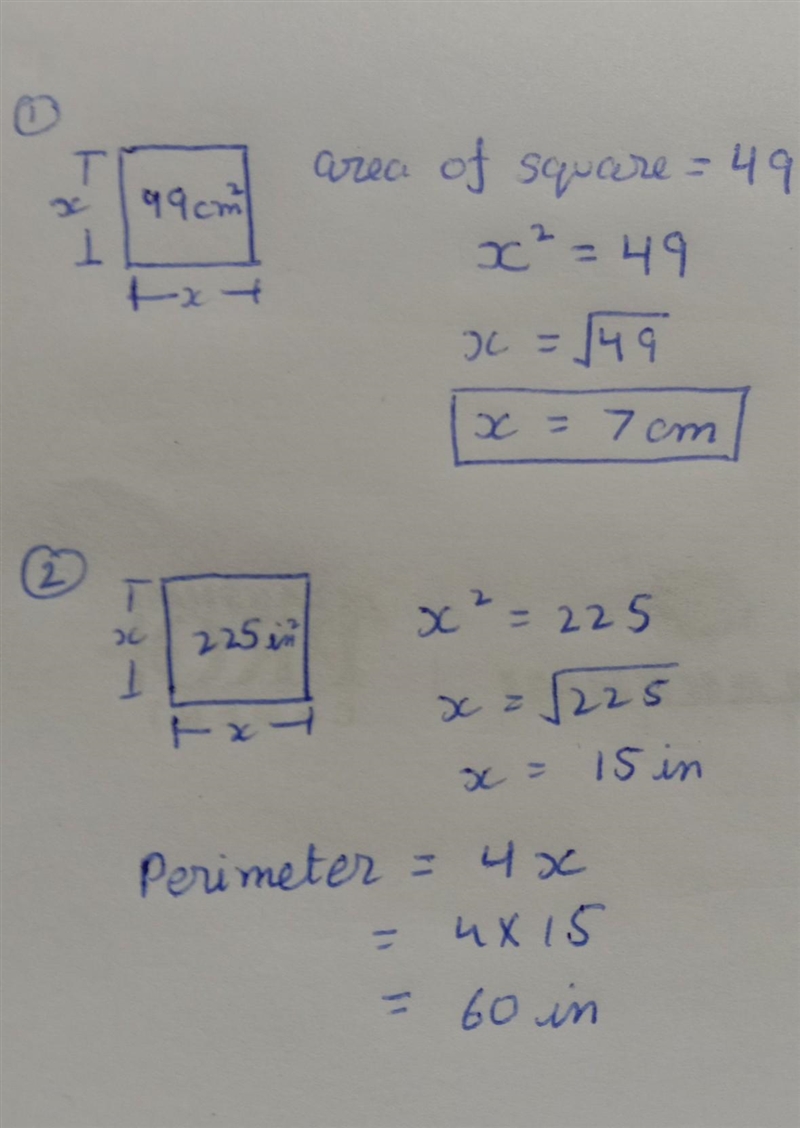 ①
x
49cm²
x
area of square = 49
x² = 49
x = √49
x = 7cm
②
x
225in²
x
x² = 225
x = √225
x = 15in
Perimeter = 4x
= 4×15
= 60in